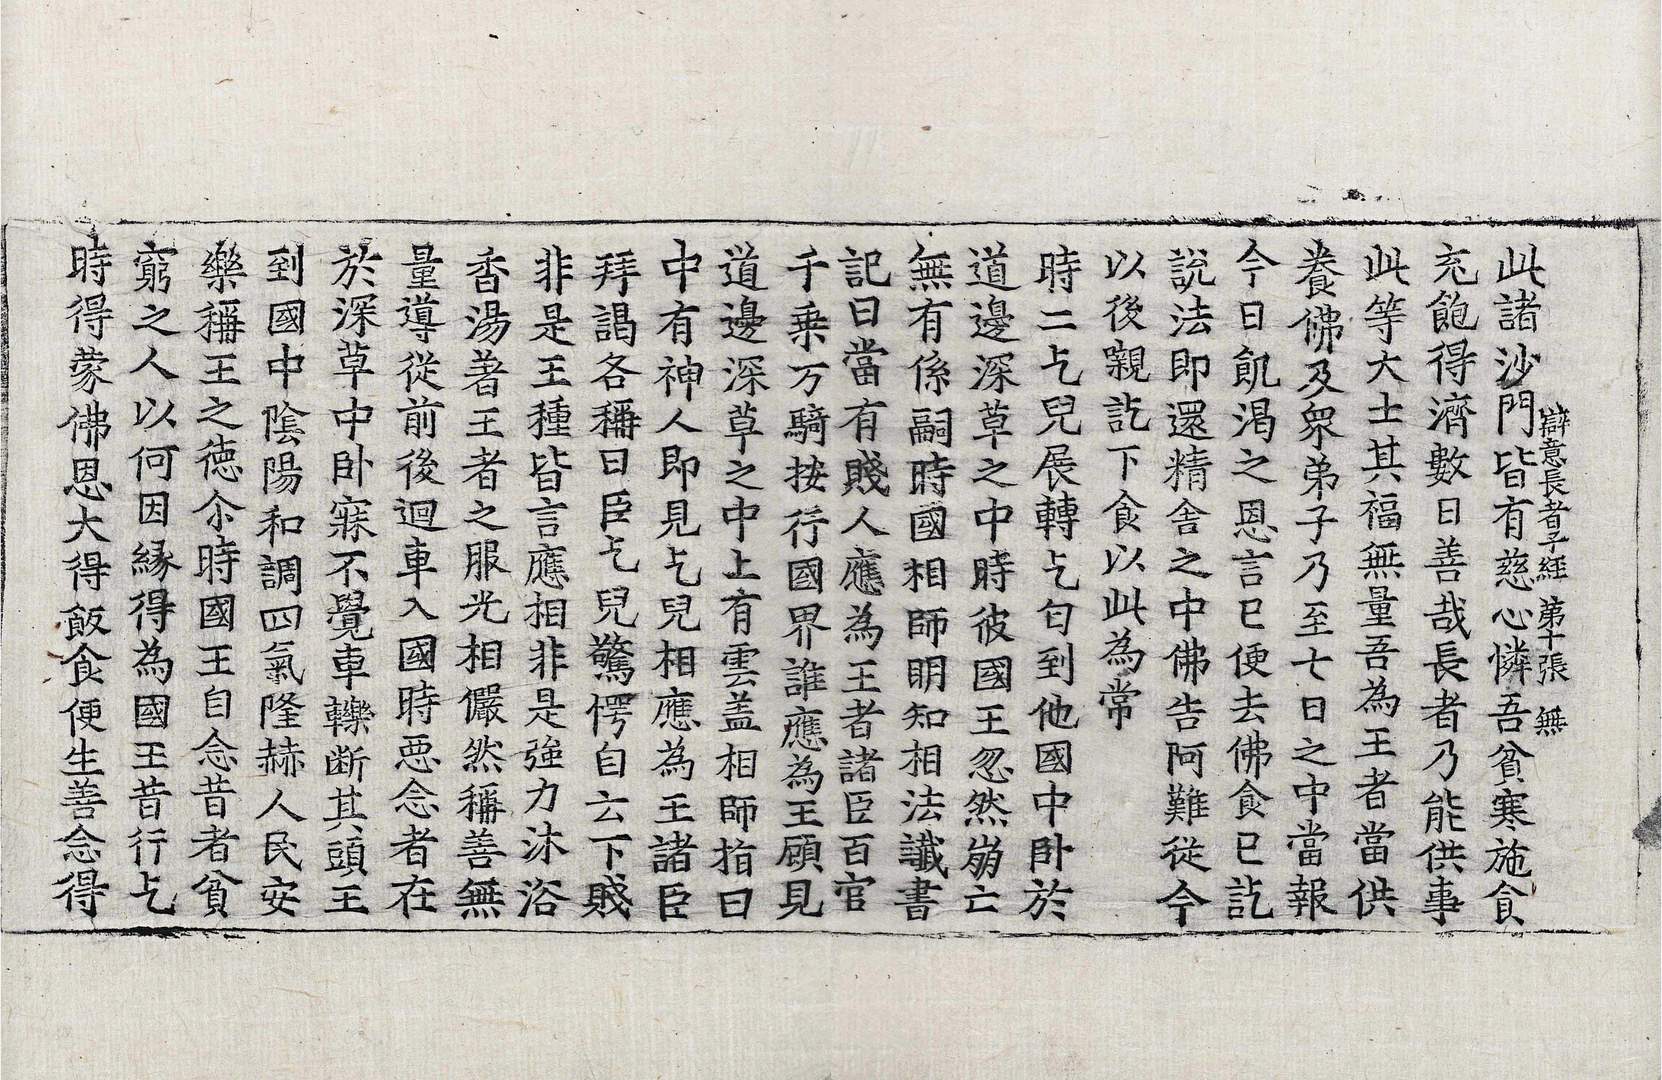 此諸沙門皆有慈心憐吾貧寒施食
辯意長者子経 第十張 無
充飽得濟數日善哉長者乃能供事
此等大士其福無量吾為王者當供
養佛及衆弟子乃至七日之中當報
今日飢渇之恩言已便去佛食已訖
說法即還精舎之中佛告阿難従今
以後嚫訖下食以此為常
時二乞兒展轉乞匃到他國中卧於
道邊深草之中時彼國王忽然崩亡
無有係嗣時國相師明知相法讖書
記曰當有賤人應為王者諸臣百官
千乗万騎按行國界誰應為王顧見
道邊深草之中上有雲盖相師指曰
中有神人即見乞兒相應為王諸臣
拜謁各稱曰臣乞兒驚愕自云下賤
非是王種皆言應相非是強力沐浴
香湯著王者之服光相儼然稱善無
量導從前後迴車入國時惡念者在
於深草中卧寐不覺車轢断其頭王
到國中陰陽和調四氣隆赫人民安
樂稱王之徳尒時國王自念昔者貧
窮之人以何因縁得為國王昔行乞
時得蒙佛恩大得飯食便生善念得